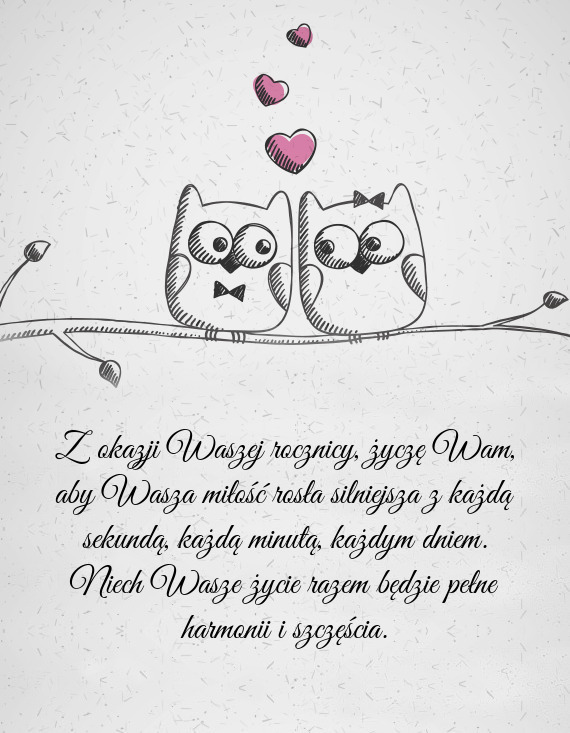 Z okazji Waszej rocznicy, życzę Wam,
aby Wasza miłość rosła silniejsza z każdą
sekundą, każdą minutą, każdym dniem.
Niech Wasze życie razem będzie pełne
harmonii i szczęścia.